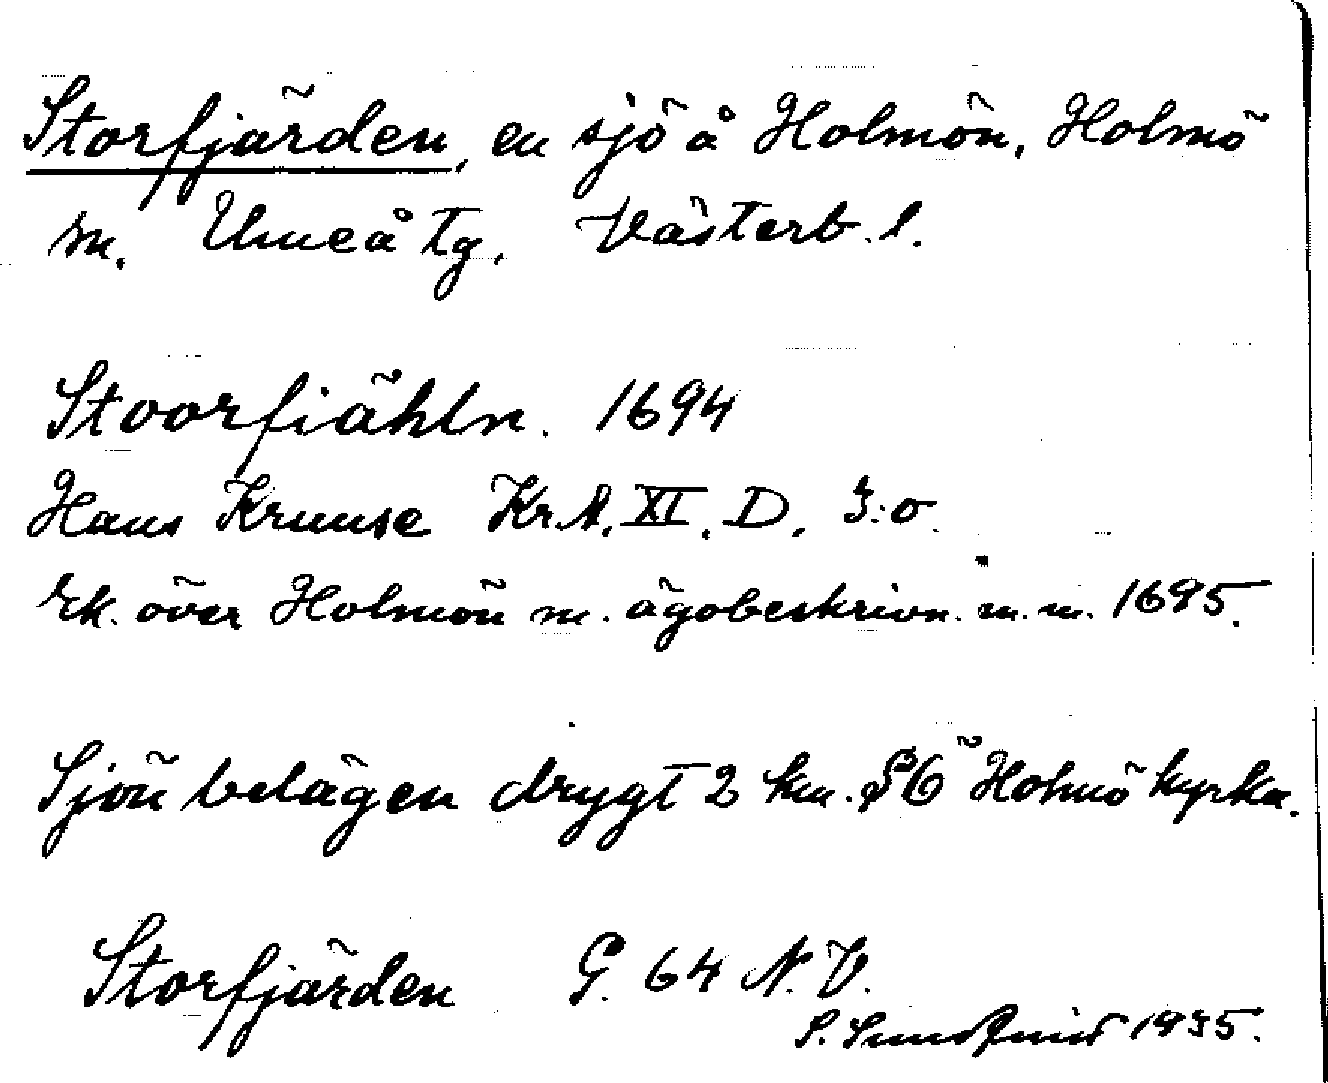 Storfjärden, en sjö å Holmön, Holmö
sn. Umeå tg, Västerb. l.
Stoorfiähln. 1694
Hans Kruuse KrA. XI. D. 3:o.
rk. över Holmön m. ägobeskrivn. m. m. 1695.
Sjön belägen drygt 2 km. SÖ Holmö kyrka.
Storfjärden G. 64 N. V.
S. Sundqvist 1935.